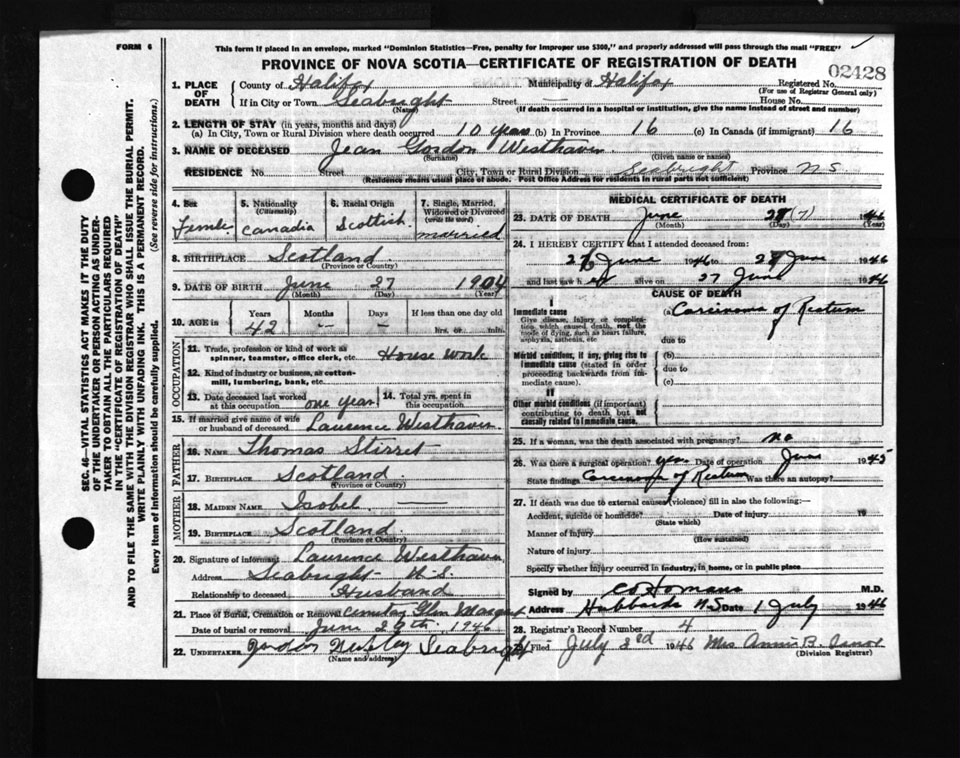 FORM 6
This form if placed in an envelope, marked "Dominion Statistics—Free, penalty for improper use $300," and properly addressed will pass through the mail "FREE"
PROVINCE OF NOVA SCOTIA—CERTIFICATE OF REGISTRATION OF DEATH
02428
1. PLACE OF DEATH
County of Halifax Municipality of Halifax Registered No.
(For use of Registrar General only)
If in City or Town Seabright Street — House No.
(Name) (If death occurred in a hospital or institution, give the name instead of street and number)
2. LENGTH OF STAY (in years, months and days)
(a) In City, Town or Rural Division where death occurred 10 years (b) In Province 16 (c) In Canada (if immigrant) 16
3. NAME OF DECEASED Jean Gordon Westhaver
(Surname) (Given name or names)
RESIDENCE No. Street City, Town or Rural Division Seabright Province N.S.
(Residence means usual place of abode. Post Office Address for residents in rural parts not sufficient)
4. Sex Female
5. Nationality (Citizenship) Canadia
6. Racial Origin Scottish
7. Single, Married, Widowed or Divorced (write the word) married
8. BIRTHPLACE Scotland
(Province or Country)
9. DATE OF BIRTH June 27 1904
(Month) (Day) (Year)
10. AGE in Years Months Days If less than one day old
42 — — hrs. or min.
OCCUPATION
11. Trade, profession or kind of work as spinner, teamster, office clerk, etc. House Work
12. Kind of industry or business, as cotton-mill, lumbering, bank, etc.
13. Date deceased last worked at this occupation one year
14. Total yrs. spent in this occupation
15. If married give name of wife or husband of deceased Laurence Westhaver
FATHER
16. NAME Thomas Stirret
17. BIRTHPLACE Scotland
(Province or Country)
MOTHER
18. MAIDEN NAME Isobel —
19. BIRTHPLACE Scotland
(Province or Country)
20. Signature of informant Laurence Westhaver
Address Seabright N.S.
Relationship to deceased Husband
21. Place of Burial, Cremation or Removal Cemetery Glen Margaret
Date of burial or removal June 29th. 1946
22. UNDERTAKER Seabright
(Name and address)
MEDICAL CERTIFICATE OF DEATH
23. DATE OF DEATH June 28 (7) 1946
(Month) (Day) (Year)
24. I HEREBY CERTIFY that I attended deceased from:
27 June 1946 to 27 June 1946
and last saw her alive on 27 June 1946
CAUSE OF DEATH
I
Immediate cause
Give disease, injury or complication, which caused death, not the mode of dying, such as heart failure, asphyxia, asthenia, etc
(a) Carcinoma of Rectum
due to
Morbid conditions, if any, giving rise to immediate cause (stated in order proceeding backwards from immediate cause).
(b)
due to
(c)
II
Other morbid conditions (if important) contributing to death but not causally related to immediate cause.
25. If a woman, was the death associated with pregnancy? no
26. Was there a surgical operation? yes Date of operation June 1945
State findings Carcinoma of Rectum Was there an autopsy?
27. If death was due to external causes (violence) fill in also the following:—
Accident, suicide or homicide? Date of injury 19
(State which)
Manner of injury
(How sustained)
Nature of injury
Specify whether injury occurred in industry, in home, or in public place
Signed by C O Homans M.D.
Address Hubbards N.S. Date 1 July 1946
28. Registrar's Record Number 4
29. Filed July 3rd 1946 Mrs Annie B. Isnor
(Division Registrar)
SEC. 46—VITAL STATISTICS ACT MAKES IT THE DUTY
OF THE UNDERTAKER OR PERSON ACTING AS UNDER-
TAKER TO OBTAIN ALL THE PARTICULARS REQUIRED
IN THE "CERTIFICATE OF REGISTRATION OF DEATH"
AND TO FILE THE SAME WITH THE DIVISION REGISTRAR WHO SHALL ISSUE THE BURIAL PERMIT.
WRITE PLAINLY WITH UNFADING INK. THIS IS A PERMANENT RECORD.
Every item of information should be carefully supplied. (See reverse side for instructions.)